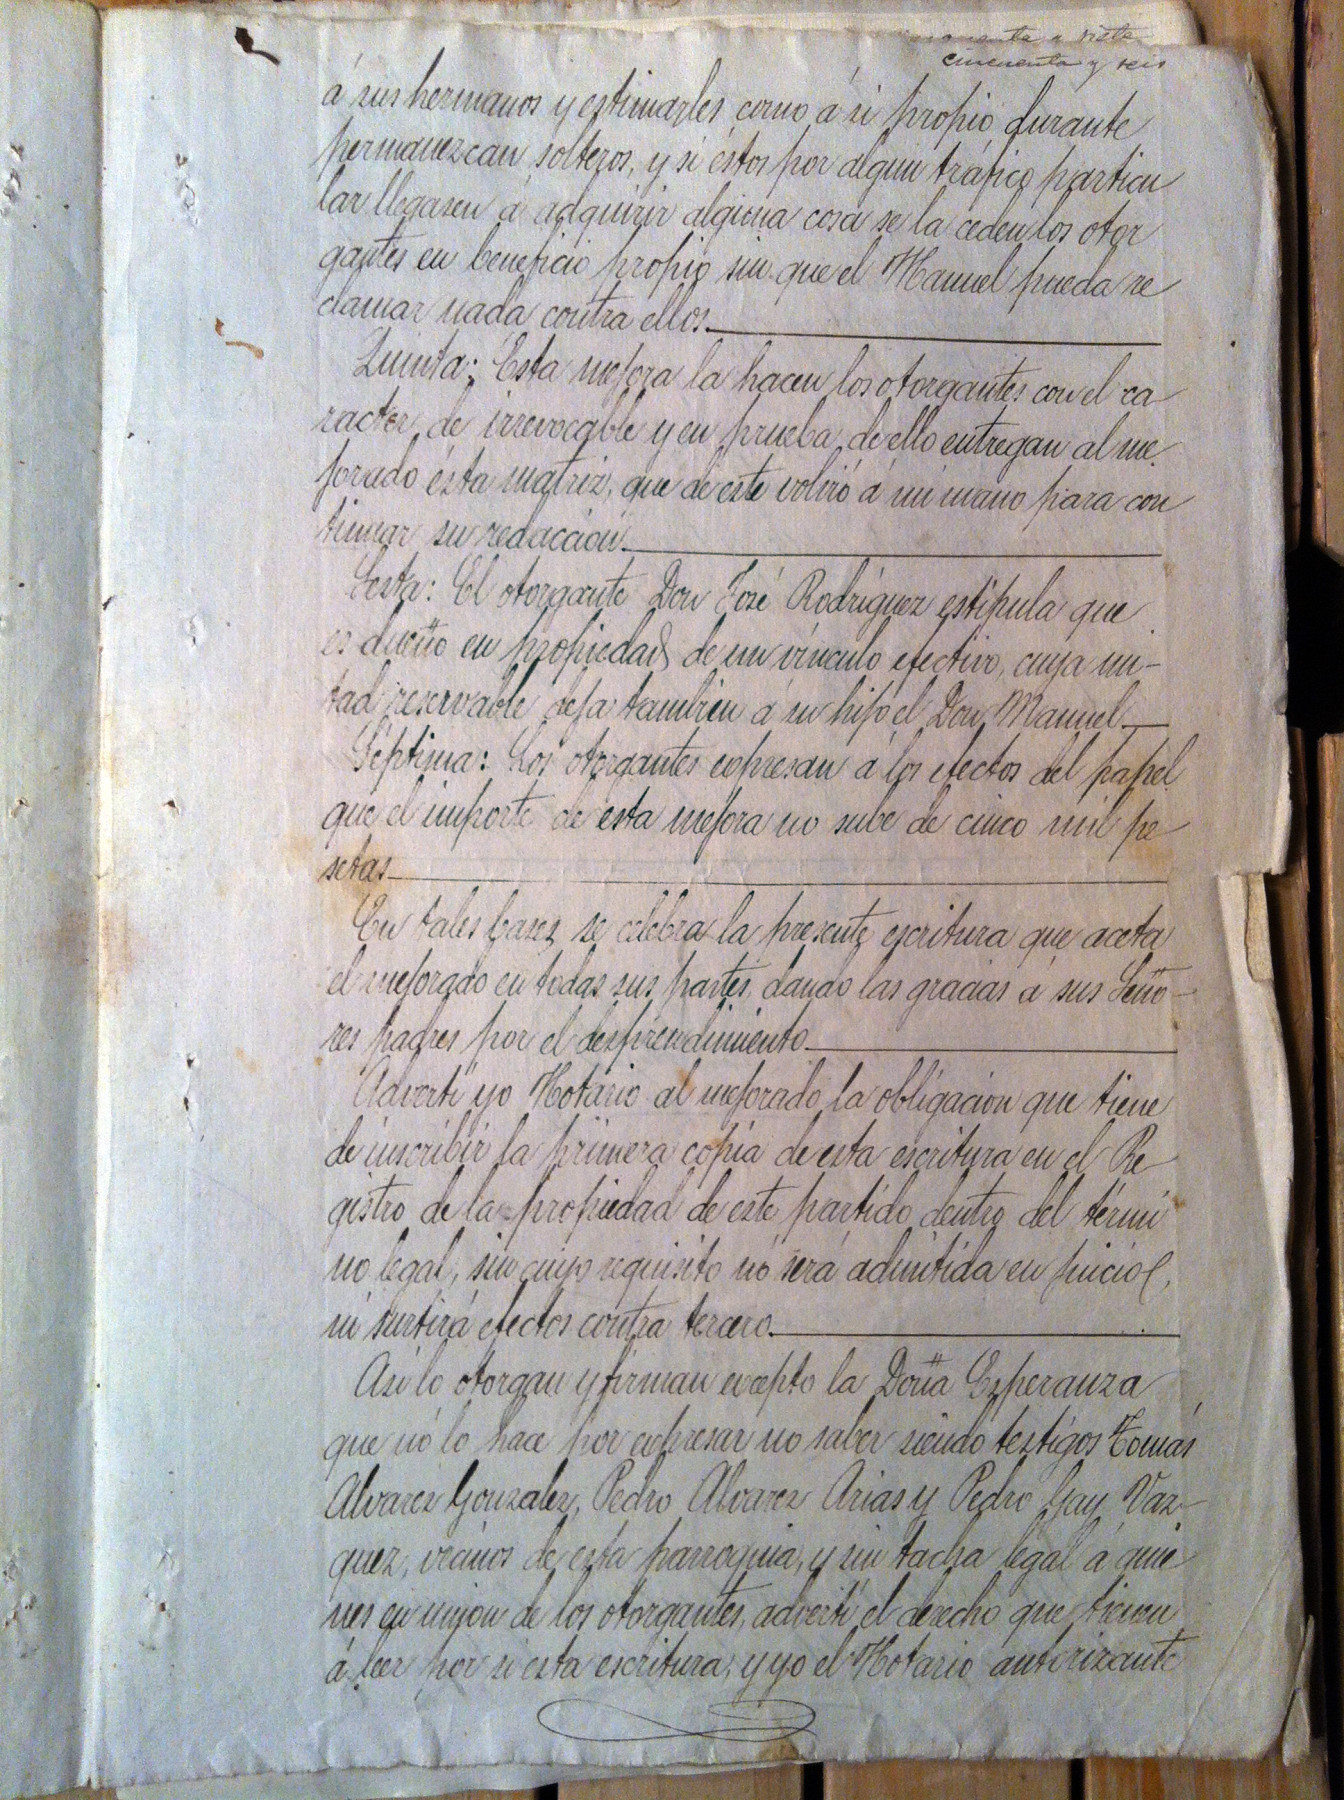 cincuenta y siete
cincuenta y seis
á sus hermanos y estimarles como á si propio durante
permanezcan solteros, y si éstos por algun tráfico particu
lar llegasen á adquirir alguna cosa se la ceden los otor
gantes en beneficio propio sin que el Manuel pueda re
clamar nada contra ellos.
Quinta: Esta mejora la hacen los otorgantes con el ca
racter de irrevocable y en prueba de ello entregan al me
jorado ésta matriz, que de este volvió á mi mano para con
tinuar su redacción.
Sesta: El otorgante Don José Rodríguez estipula que
es dueño en propiedad de un vínculo efectivo, cuya mi-
tad reservable deja tambien á su hijo el Don Manuel.
Séptima: Los otorgantes espresan á los efectos del papel
que el importe de esta mejora no sube de cinco mil pe
setas
En tales bases se celebra la presente escritura que aceta
el mejorado en todas sus partes, dando las gracias á sus Seño-
res padres por el desprendimiento.
Advertí yo Notario al mejorado la obligación que tiene
de inscribir la primera copia de esta escritura en el Re
gistro de la propiedad de este partido dentro del térmi
no legal, sin cuyo requisito nó será admitida en juicio,
ni surtirá efectos contra tercero.
Asi lo otorgan y firman excepto la Doña Esperanza
que nó lo hace por espresar no saber siendo testigos Tomás
Alvarez Gonzalez, Pedro Alvarez Arias y Pedro Gay Vaz-
quez, vecinos de esta parroquia, y sin tacha legal á quie
nes en union de los otorgantes, advertí el derecho que tienen
á leer por si esta escritura, y yo el Notario autorizante